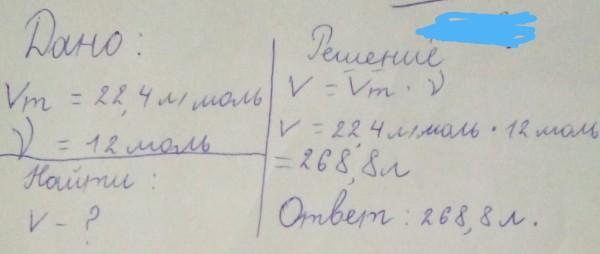 Дано:
Vm = 22,4 л/моль
ν = 12 моль
Найти:
V - ?
Решение
V = Vm · ν
V = 22,4 л/моль · 12 моль
= 268,8 л
Ответ: 268,8 л.